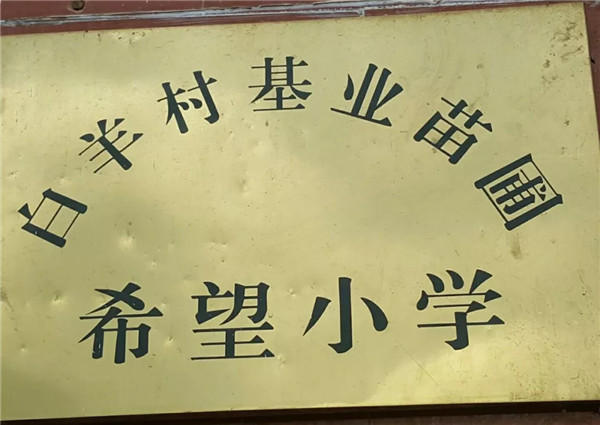 白羊村基业苗圃
希望小学